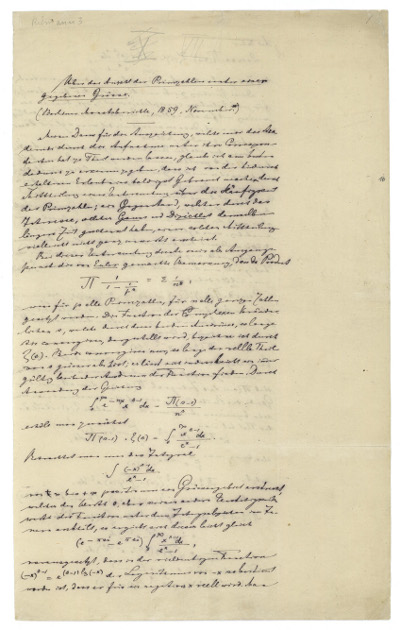 Ueber die Anzahl der Primzahlen unter einer
gegebenen Grösse.
(Berliner Monatsberichte, 1859, November)
Meinen Dank für die Auszeichnung, welche mir die Aka-
demie durch die Aufnahme unter ihre Correspon-
denten hat zu Theil werden lassen, glaube ich am besten
dadurch zu erkennen zu geben, dass ich von der hierdurch
erhaltenen Erlaubniss baldigst Gebrauch mache durch
Mittheilung einer Untersuchung über die Häufigkeit
der Primzahlen; ein Gegenstand, welcher durch das
Interesse, welches Gauss und Dirichlet demselben
längere Zeit geschenkt haben, einer solchen Mittheilung
vielleicht nicht ganz unwerth erscheint.
Bei dieser Untersuchung diente mir als Ausgangs-
punkt die von Euler gemachte Bemerkung, dass das Product
∏ 1/(1 − 1/p^s) = Σ 1/n^s,
wenn für p alle Primzahlen, für n alle ganzen Zahlen
gesetzt werden. Die Function der complexen Veränder-
lichen s, welche durch diese beiden Ausdrücke, so lange
sie convergiren, dargestellt wird, bezeichne ich durch
ζ(s). Beide convergiren nur, so lange der reelle Theil
von s grösser als 1 ist; es lässt sich indess leicht ein immer
gültig bleibender Ausdruck der Function finden. Durch
Anwendung der Gleichung
∫ e^(−nx) x^(s−1) dx = Π(s−1)/n^s
erhält man zunächst
Π(s−1) ζ(s) = ∫ x^(s−1) dx/(e^x − 1)
Betrachtet man nun das Integral
∫ (−x)^(s−1) dx/(e^x − 1)
von +∞ bis +∞ positiv um ein Grössengebiet erstreckt,
welches den Werth 0, aber keinen andern Unstetigkeits-
werth der Function unter dem Integralzeichen im In-
nern enthält, so ergiebt sich dieses leicht gleich
(e^(−πsi) − e^(πsi)) ∫ x^(s−1) dx/(e^x − 1),
vorausgesetzt, dass in der vieldeutigen Function
(−x)^(s−1) = e^((s−1) log(−x)) der Logarithmus von −x so bestimmt
worden ist, dass er für ein negatives x reell wird.